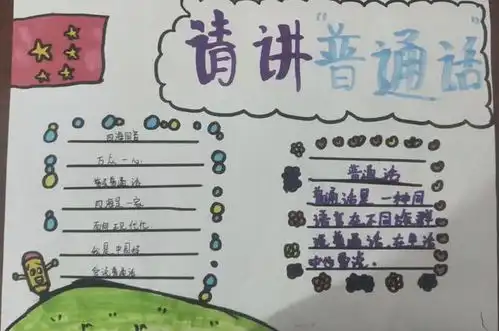 请讲“普通话”
四海同音
万众一心
普通话
四海是一家
面向现代化
我是中国娃
会说普通话
普通话
普通话是一种同
语言在不同族群
说普通话,在生活
中的